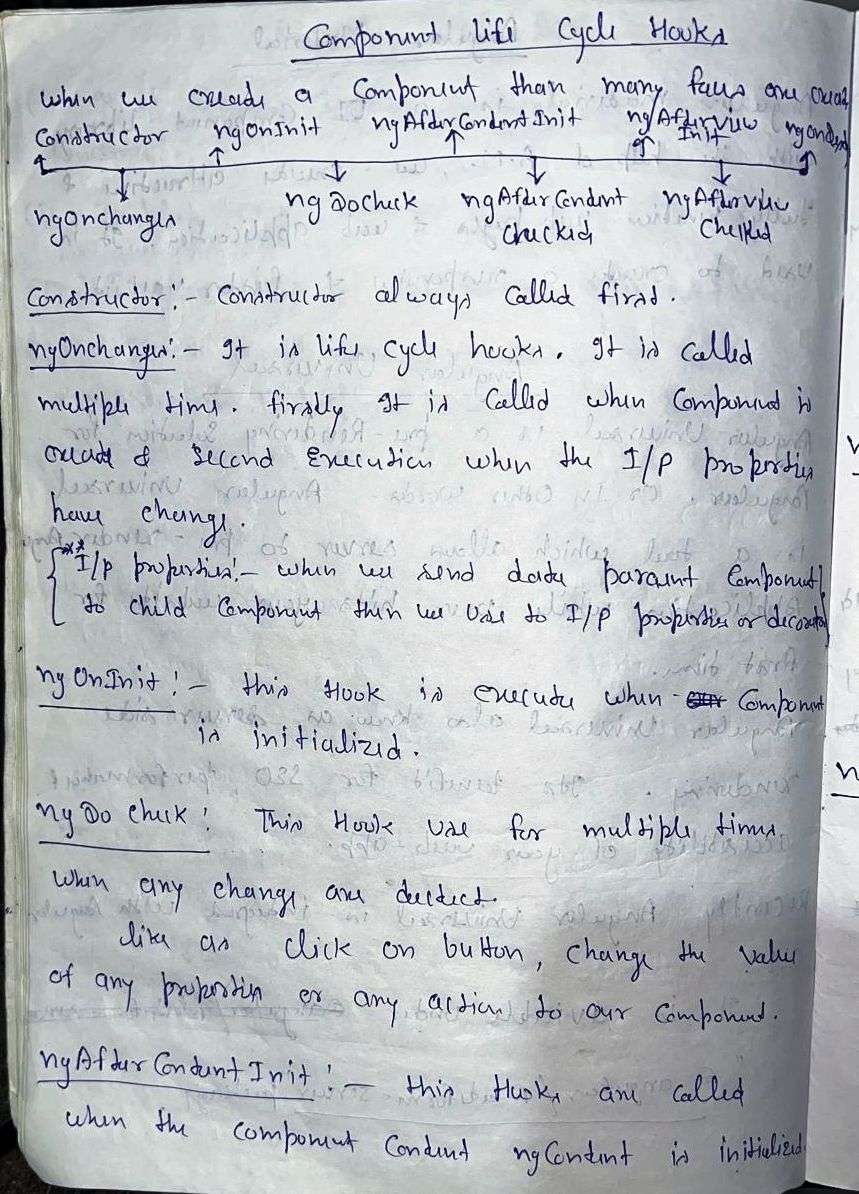 Component life Cycle Hooks
when we create a Component than many faus are creat
Constructor ngOnInit ngAfterContentInit ngAfterview Init ngondest
ngOnchanges ng DoCheck ngAfterContent Checked ngAfterview Checked
Constructor :- Constructor always called first.
ngOnchanges :- It is life cycle hooks. It is called
multiple time. firstly It is called when Component is
create & second Execution when the I/P properties
have change.
** I/p properties :- when we send data paraunt Component
to child Component then we use to I/P properties or decorator
ngOnInit :- this Hook is execute when Component
is initialized.
ngDo Check : This Hook use for multiple times
when any change are dectect.
like as click on button, change the value
of any properties or any action to our Component.
ngAfterContentInit :- this Hooks are called
when the component Content ngContent is initialized